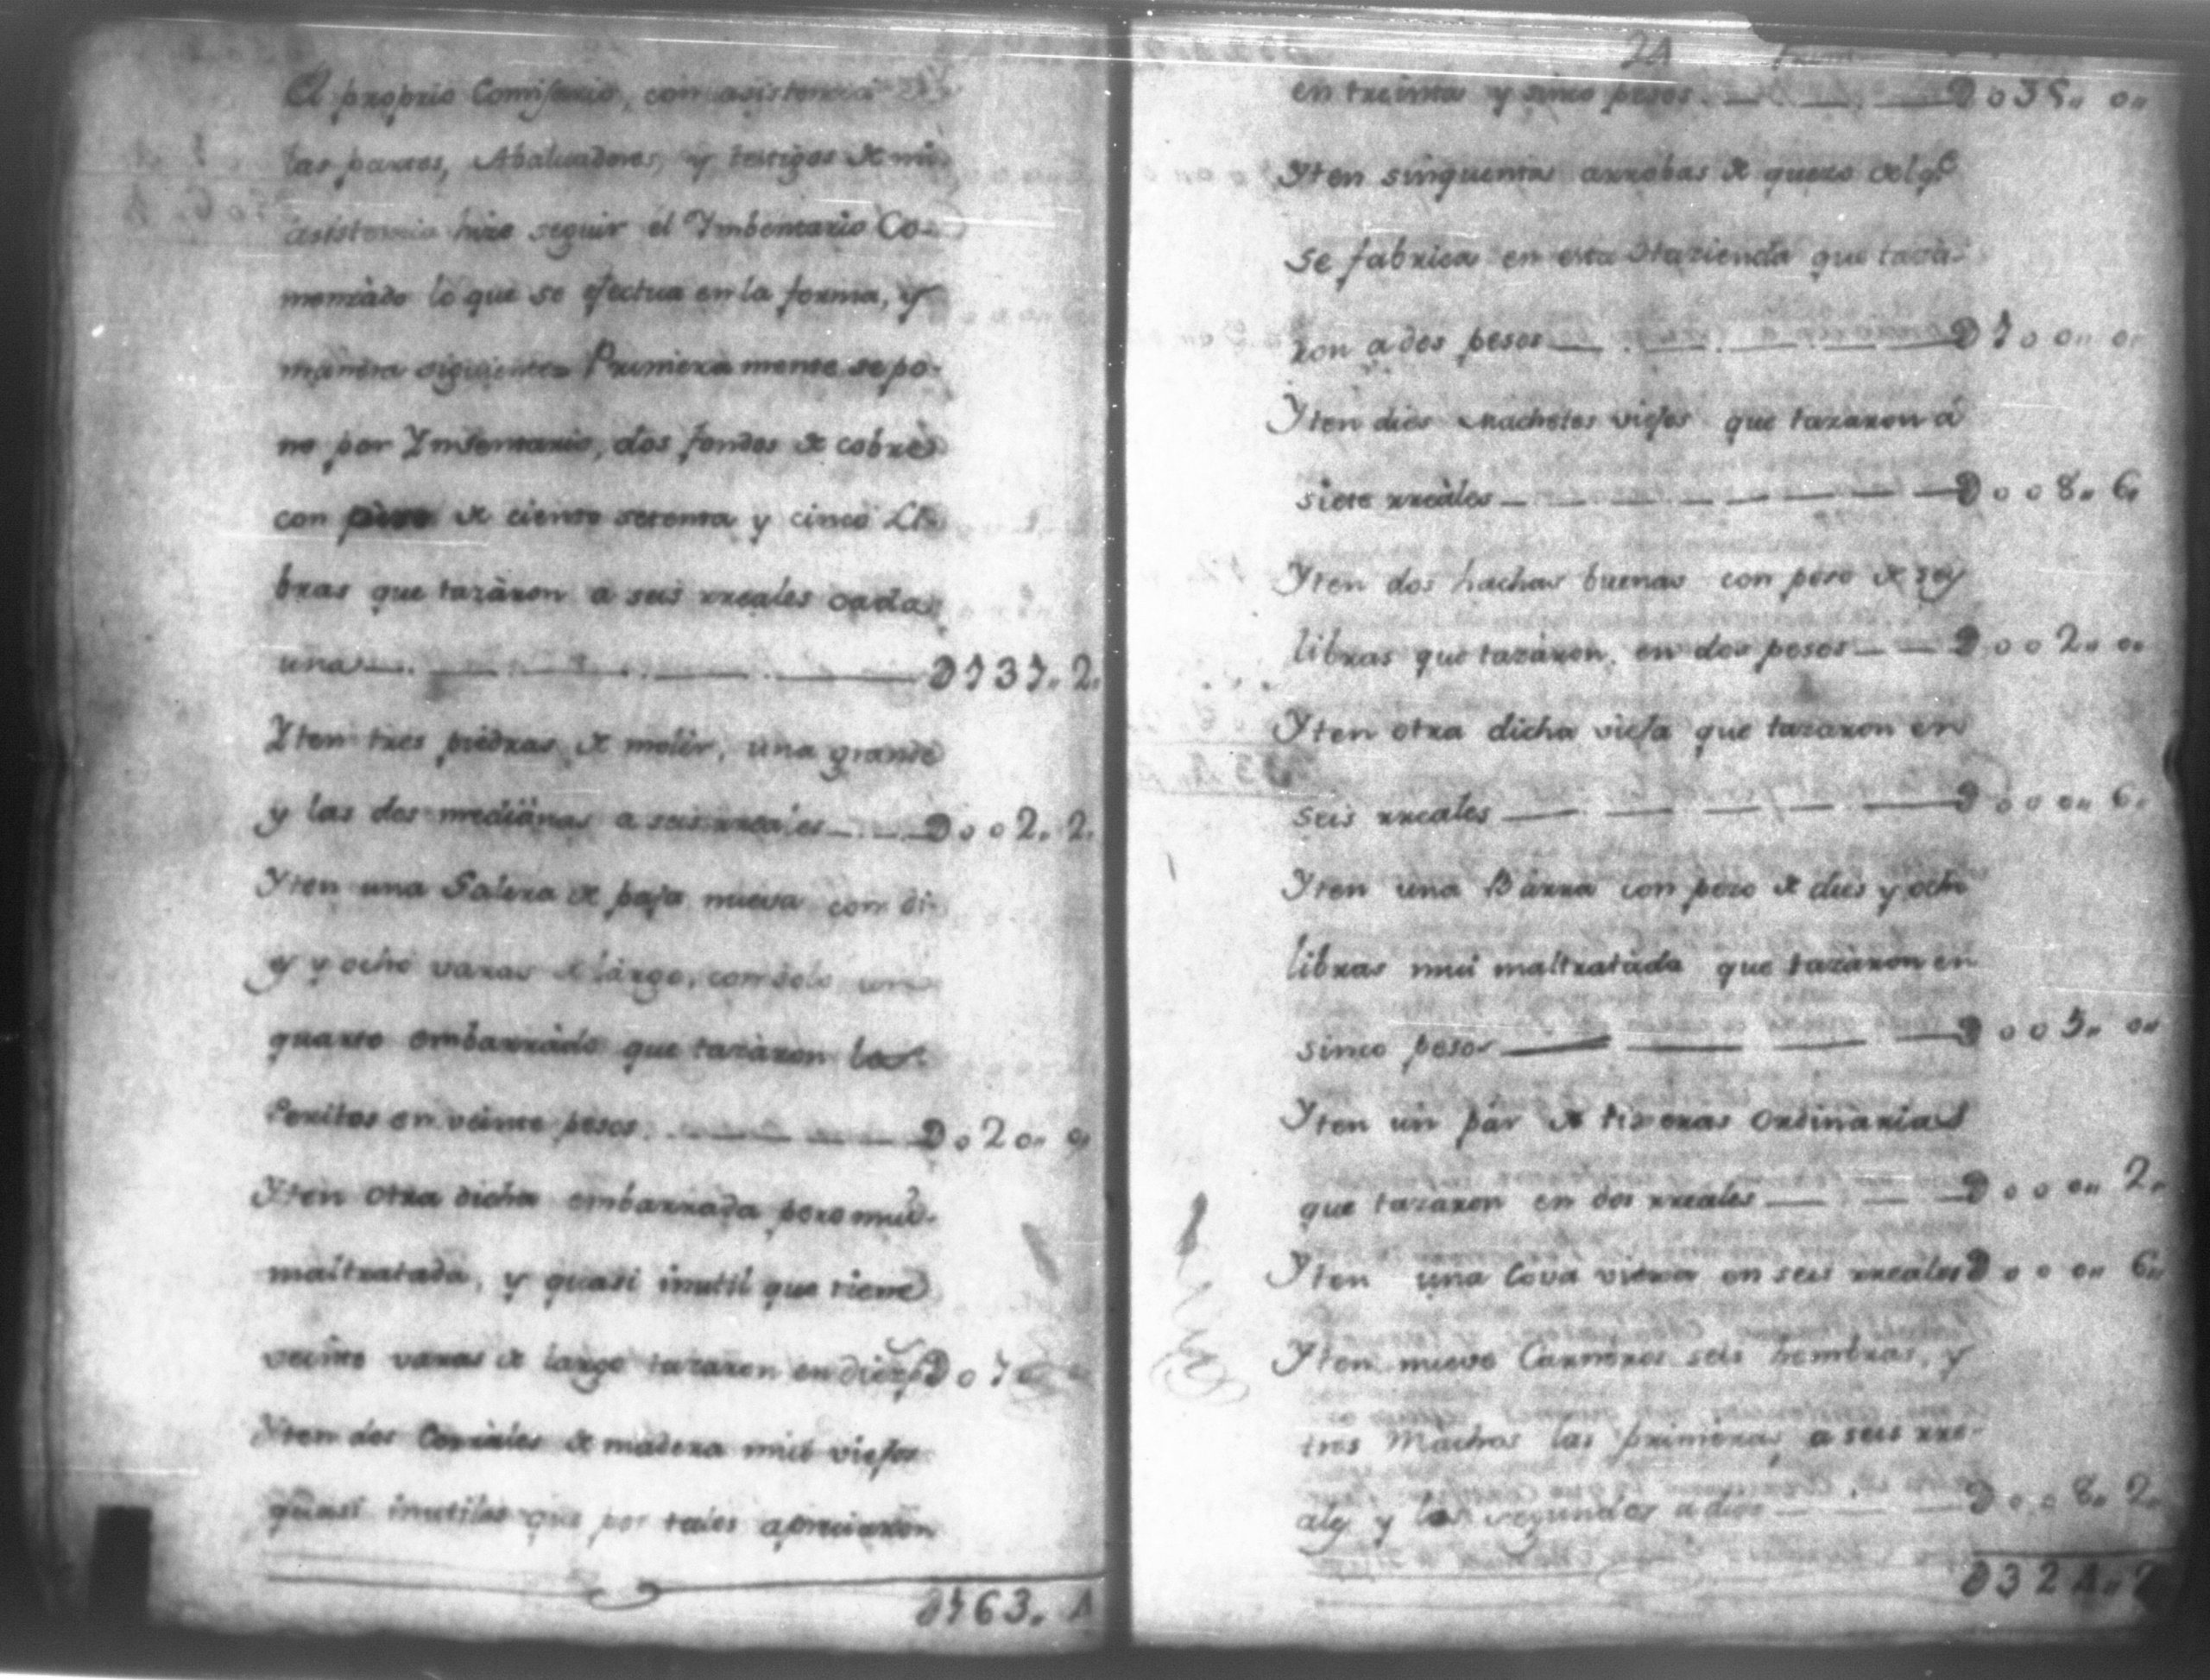 El proprio Comisario, con asistencia
las partes, Abaluadores, y testigos de mi
asistencia hize seguir el Ymbentario Co-
menzàdo lo que se efectua en la forma, y
manera siguiente Primeramente se po-
ne por Ymbentario, dos fondos de cobre
con peso de ciento setenta y cinco Li-
bras que tazàron a seis rreales cada
una D131.. 2.
Yten tres piedras de molèr, una grande
y las dos mediànas a seis rreales D002.. 2.
Yten una Galera de paja nueva con di-
ey y ocho varas de làrgo, con solo un
quarto embarràdo que tazàron los
Peritos en veinte pesos D020.. 0
Yten otra dicha embarrada pero mui
maltratada, y quasi inutil que tiene
veinte varas de largo tazaron en diez ps D010
Yten dos Corrales de madera mui viejos
quasi inutiles que por tales apreciaron
D163.. 4
24
en treinta y sinco pesos D035.. 0..
Yten sinquenta arrobas de queso del qe
se fabrica en esta Hazienda que taza-
ron a dos pesos D100.. 0..
Yten dies Machetes viejos que tazaron à
siete rreàles D008.. 6.
Yten dos hachas buenas con peso de sey
libras que tazàron, en dos pesos D002.. 0..
Yten otra dicha vieja que tazaron en
seis rreales D000.. 6.
Yten una Bàrra con peso de dies y ocho
libras mui maltratàda que tazàron en
sinco pesos D005.. 0..
Yten un pàr de tixeras ordinarias
que tazàron en dos rreàles D000.. 2..
Yten una Cova vieja en seis rreales D000.. 6..
Yten nueve Carneros seis hembras, y
tres Machos las primeras, a seis rre-
aley y los segundos a dies D008.. 2..
D324.. 2